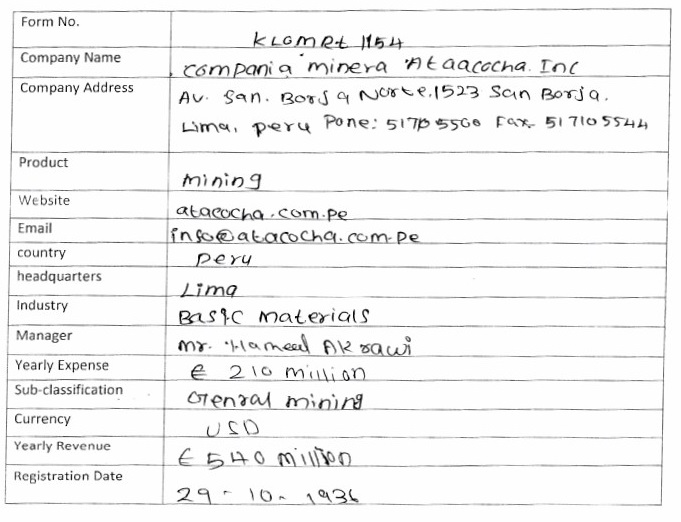 Form No.
KLGMRt 1154
Company Name
compania minera Ataacocha. Inc
Company Address
Av. San. Borja Norte.1523 San Borja.
Lima, peru Pone: 517105500 Fax. 517105544
Product
mining
Website
atacocha.com.pe
Email
info@atacocha.com.pe
country
peru
headquarters
Lima
Industry
Basic materials
Manager
mr. Hameed Akrawi
Yearly Expense
€ 210 million
Sub-classification
Genral mining
Currency
USD
Yearly Revenue
€ 540 million
Registration Date
29-10-1936